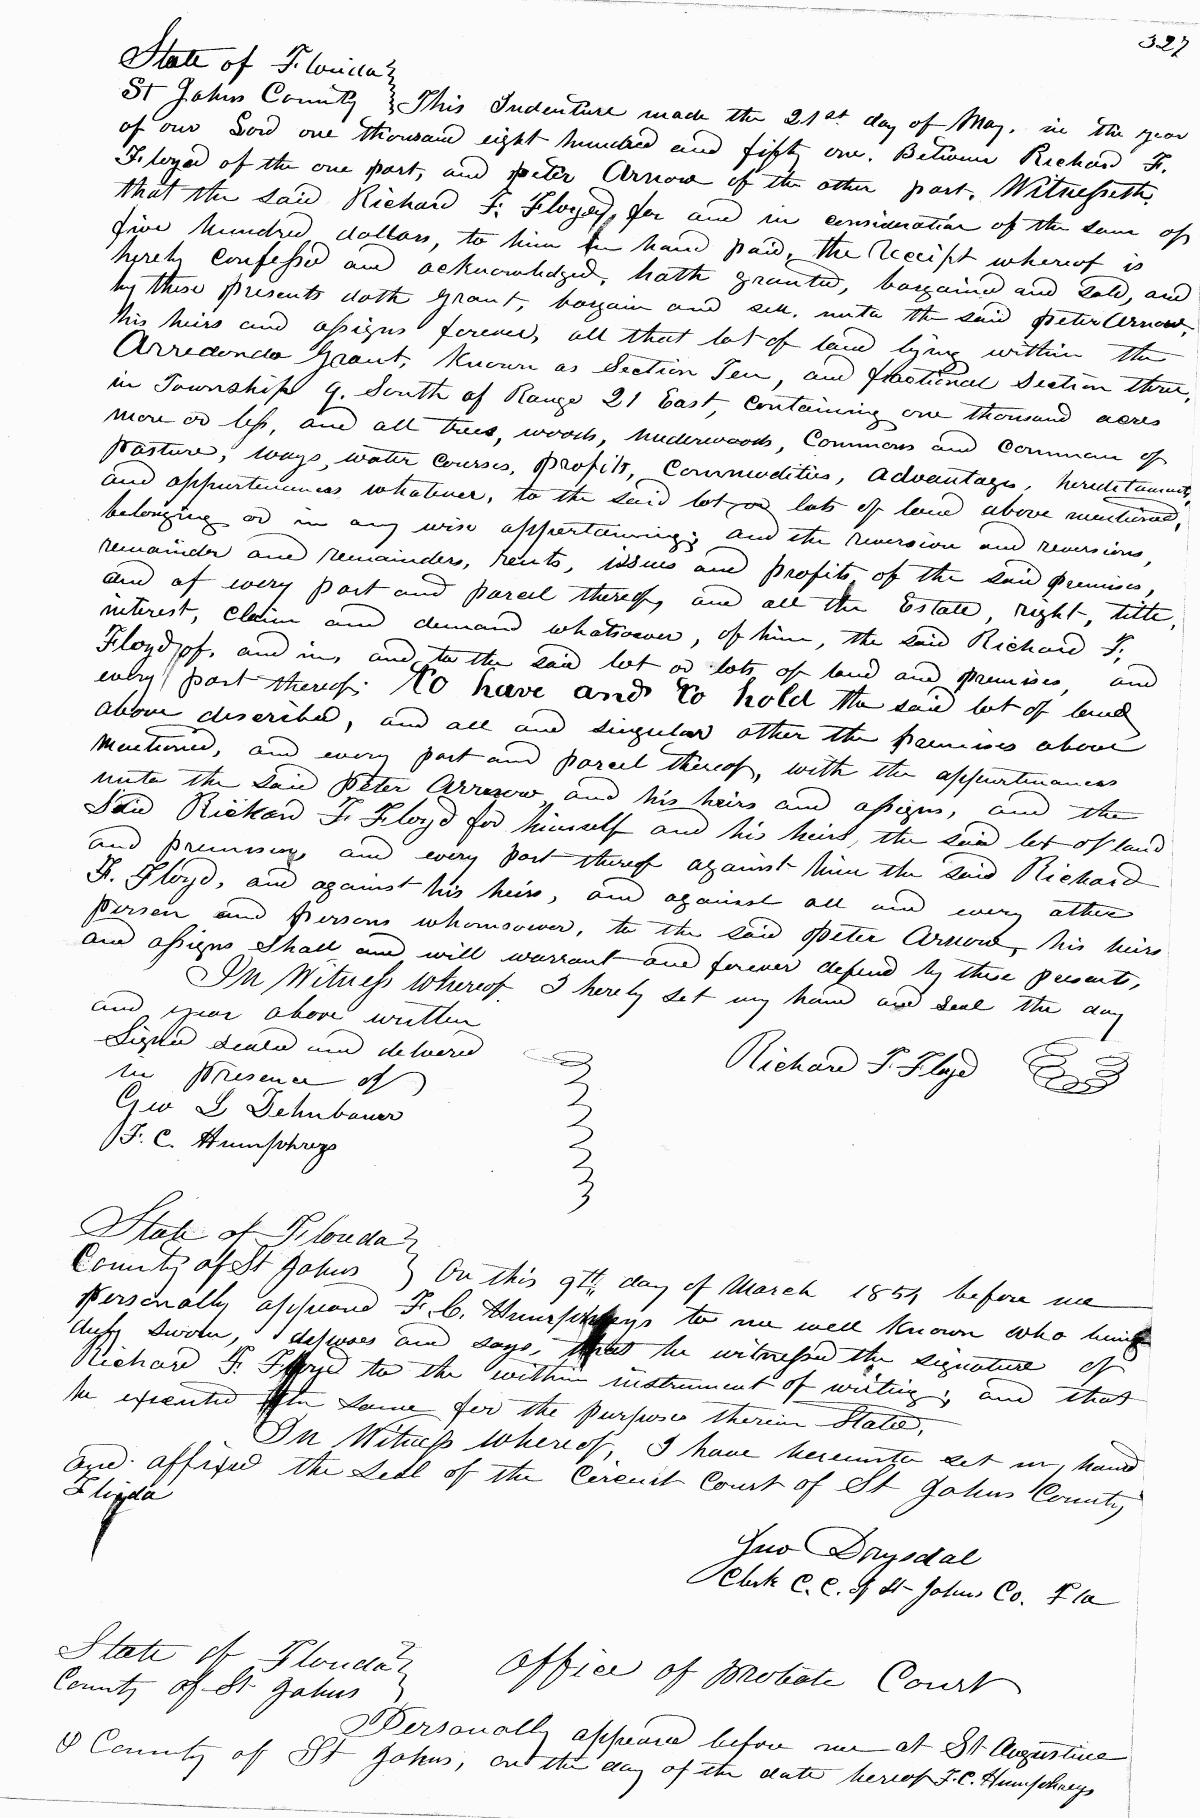 327
State of Florida
St Johns County } This Indenture made the 21st day of May, in the year
of our Lord one thousand eight hundred and fifty one. Between Richard F.
Floyd of the one part, and Peter Arnow of the other part. Witnesseth,
that the said Richard F. Floyd, for and in consideration of the sum of
five hundred dollars, to him in hand paid, the receipt whereof is
hereby confessed and acknowledged, hath granted, bargained and sold, and
by these presents doth grant, bargain and sell, unto the said Peter Arnow,
his heirs and assigns forever, all that lot of land lying within the
Arredondo Grant, Known as Section Ten, and fractional Section three,
in Township 9. South of Range 21 East, containing one thousand acres
more or less, and all trees, woods, underwoods, Commons and Common of
pasture, ways, water courses, profits, Commodities, advantages, hereditaments,
and appurtenances whatever, to the said lot or lots of land above mentioned,
belonging or in any wise appertaining; and the reversion and reversions,
remainder and remainders, rents, issues and profits, of the said premises,
and of every part and parcel thereof, and all the Estate, right, title,
interest, claim and demand whatsoever, of him, the said Richard F.
Floyd, of, and in, and to the said lot or lots of land and premises, and
every part thereof; to have and to hold the said lot of land
above described, and all and singular other the premises above
mentioned, and every part and parcel thereof, with the appurtenances
unto the said Peter Arnow, and his heirs and assigns, and the
Said Richard F. Floyd for himself and his heirs, the said lot of land
and premises, and every part thereof against him the said Richard
F. Floyd, and against his heirs, and against all and every other
person and persons whomsoever, to the said Peter Arnow, his heirs
and assigns shall and will warrant and forever defend by these presents,
In Witness whereof I hereby set my hand and seal the day
and year above written
Signed sealed and delivered
in presence of
Richard F. Floyd
Geo L Dehnbauer
F. C. Humphreys
State of Florida
County of St Johns } On this 9th day of March 1854 before me
personally appeared F. C. Humphreys to me well Known who being
duly sworn, deposes and says, that he witnessed the signature of
Richard F. Floyd to the within instrument of writing; and that
he executed the same for the purposes therein Stated,
In Witness whereof, I have hereunto set my hand
and affixed the Seal of the Circuit Court of St Johns County
Florida
Geo Drysdal
Clerk C. C. of St Johns Co. Fla
State of Florida
County of St Johns } Office of Probate Court
Personally appeared before me at St Augustine
& County of St Johns, on the day of the date hereof F. C. Humphreys